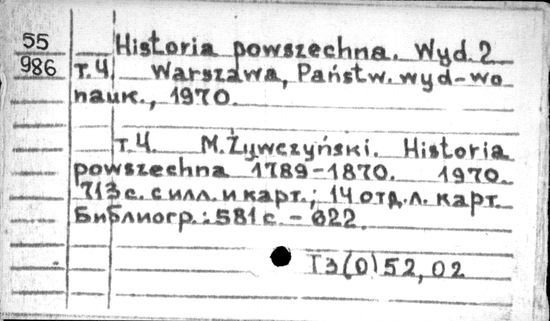 55
986
Historia powszechna. Wyd. 2
т.4 Warszawa, Państw. wyd-wo
nauk., 1970.
т.4. M.Żywczyński. Historia
powszechna 1789-1870. 1970.
713 с. с илл. и карт.; 14 отд.л. карт.
Библиогр.: 581 с. - 622.
Т3(0)52,02